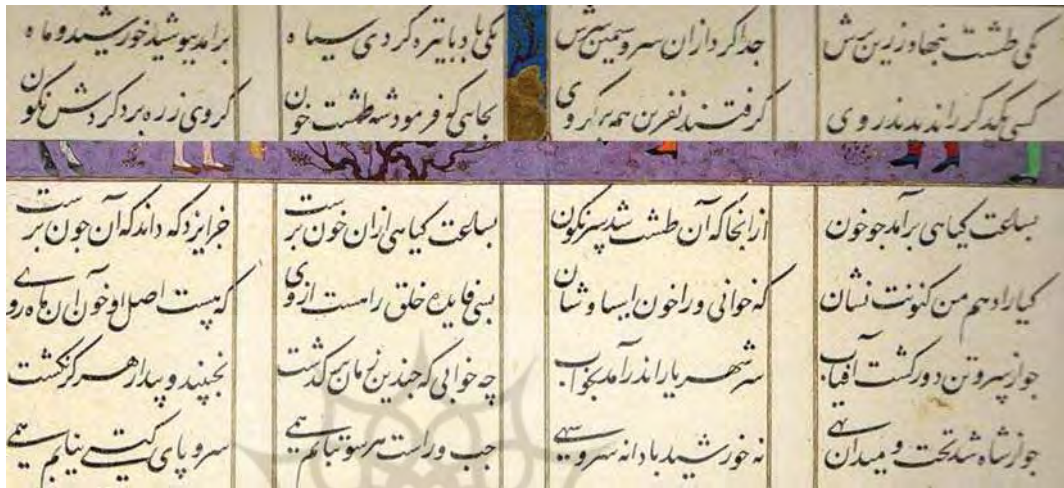 یکی طشت بنهاد زرین برش جدا کرد از ان سرو سیمین سرش یکی باد با تیره کردی سیاه برامد بپوشید خورشید و ماه
کسی یکدکر را ندیدند روی کرفتند نفرین همه بر کروی بجایی که فرمود شه طشت خون کروی زره برد کردش نکون
بساعت کیاهی برآمد جو خون از انجا که آن طشت شد سرنکون بساعت کیاهی ازان خون برست جز ایزد که داند که آن جون برست
کیا را دهم من کنونت نشان که خوانی ورا خون ایسا وشان بسی فایده خلق را هست ازوی که هست اصل او خون آن ماه روی
جو از سروتن دور کشت آفتاب سر شهریار اندر آمد بخواب چه خوابی که جندین زمان برکذشت نجنبید و بیدار هرکز نکشت
جو از شاه شد تخت و میدان تهی نه خورشید بادا نه سرو سهی جب و راست هر سو بتابم همی سر و پای کیتی نیابم همی